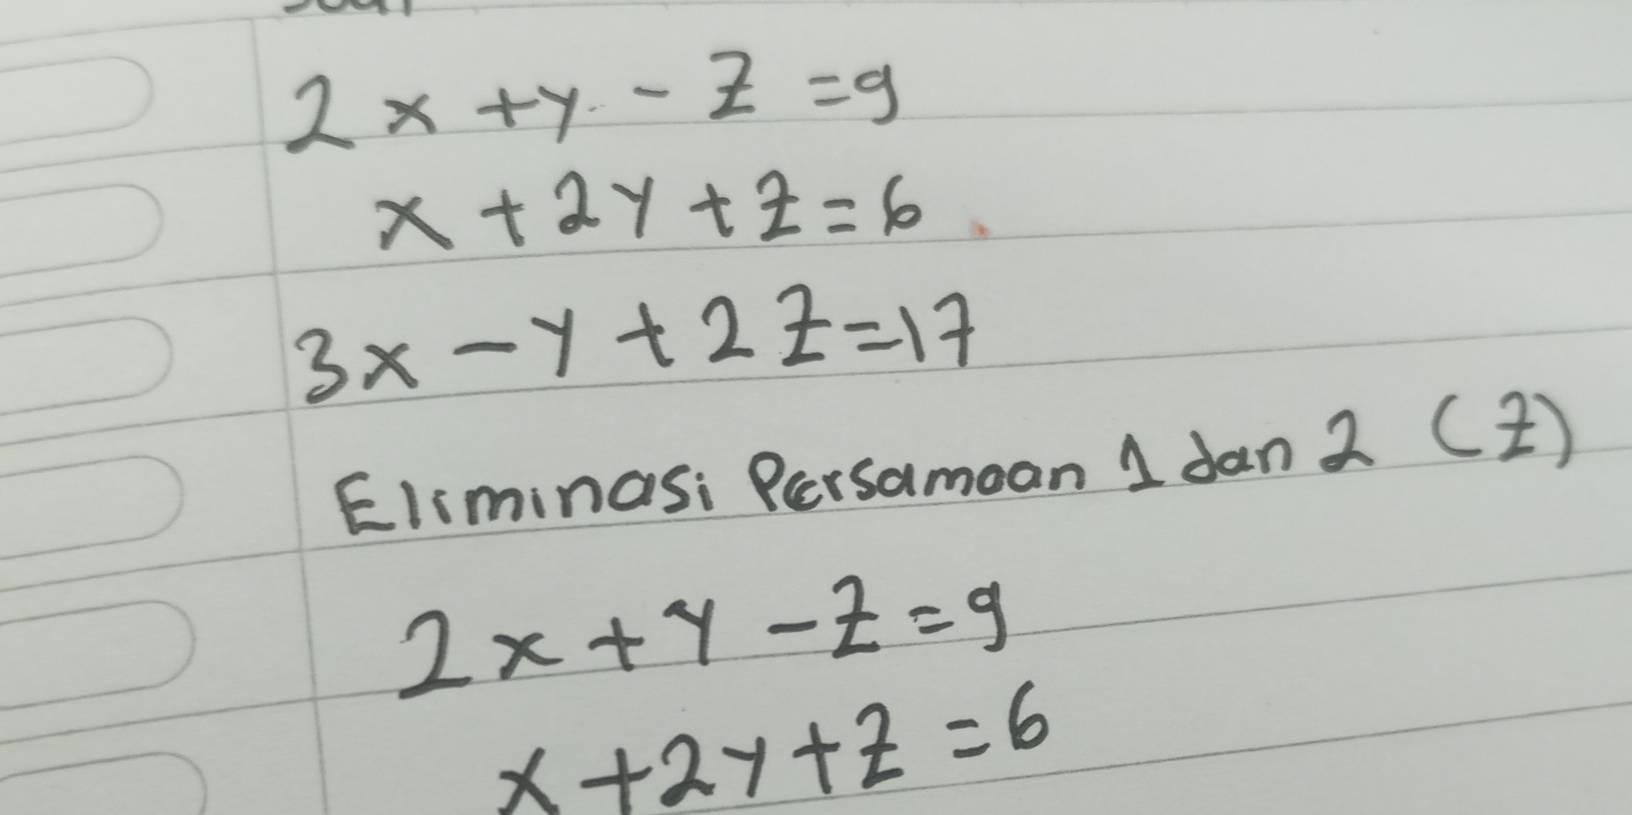 2x + y - z = 9
x + 2y + z = 6
3x - y + 2z = 17
Eliminasi Persamaan 1 dan 2 (z)
2x + y - z = 9
x + 2y + z = 6